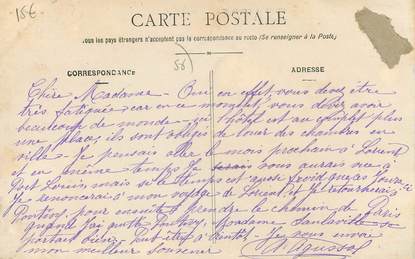 15€
CARTE POSTALE
Tous les pays étrangers n'acceptent pas la correspondance au recto (Se renseigner à la Poste)
56
CORRESPONDANCE
ADRESSE
Chère Madame - Oui en effet vous devez être
très fatiguée car en ce moment, vous devez avoir
beaucoup de monde - l'hôtel est au complet plus
une place, ils sont obligés de louer des chambres en
ville - Je pensais aller le mois prochain à Lorient
et en même temps vous aurais vue à
Port Louis mais si le temps est aussi froid que ces jours-ci
Je renoncerai à mon voyage de Lorient et Je retournerai à
Pontivy pour ensuite prendre le chemin de Paris
quand j'ai quitté Pontivy, Madame
portait bien - Peut-être à bientôt - Je vous envoie
mon meilleur souvenir